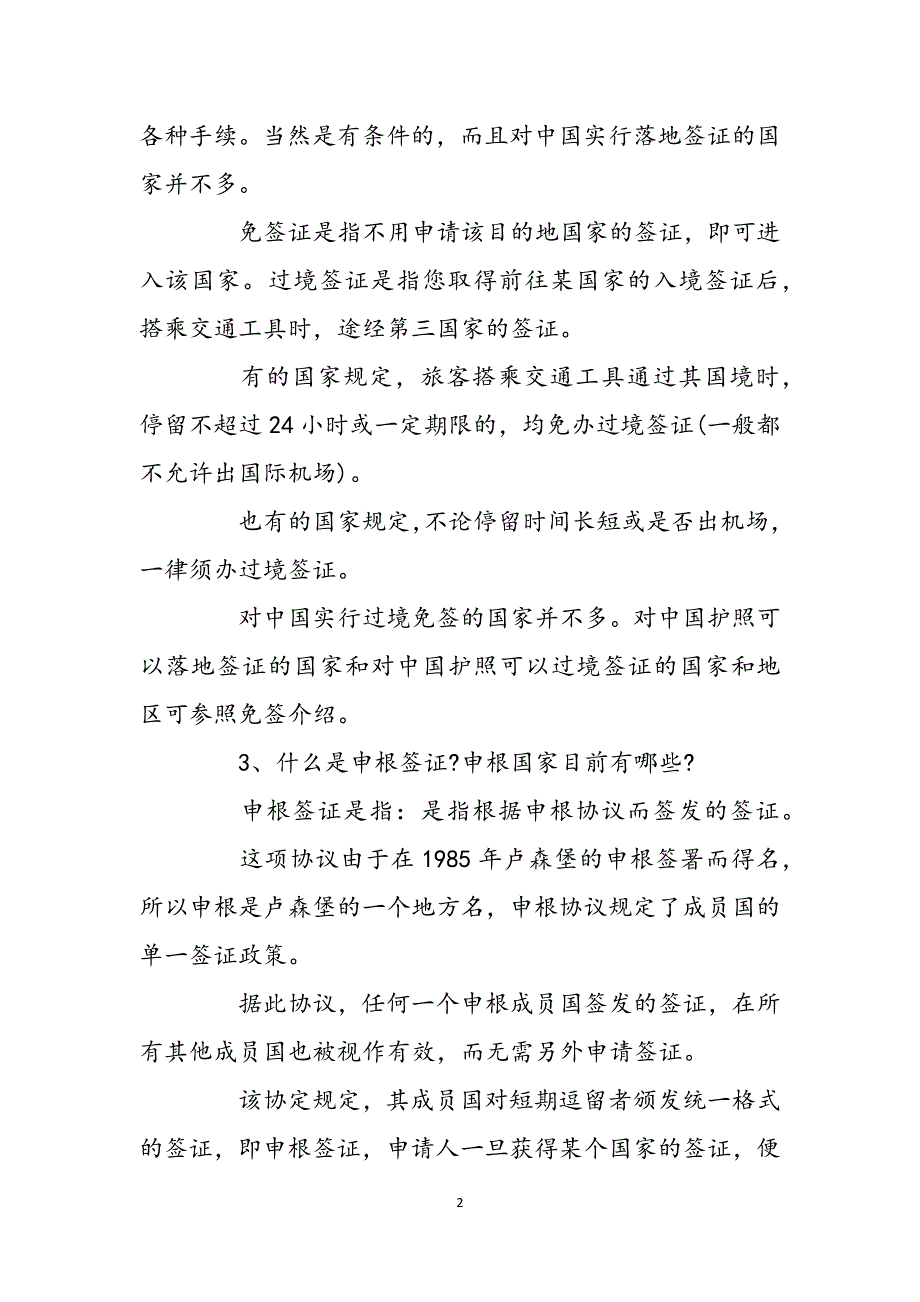 各种手续。当然是有条件的，而且对中国实行落地签证的国
家并不多。
免签证是指不用申请该目的地国家的签证，即可进
入该国家。过境签证是指您取得前往某国家的入境签证后，
搭乘交通工具时，途经第三国家的签证。
有的国家规定，旅客搭乘交通工具通过其国境时，
停留不超过24小时或一定期限的，均免办过境签证(一般都
不允许出国际机场)。
也有的国家规定,不论停留时间长短或是否出机场，
一律须办过境签证。
对中国实行过境免签的国家并不多。对中国护照可
以落地签证的国家和对中国护照可以过境签证的国家和地
区可参照免签介绍。
3、什么是申根签证?申根国家目前有哪些?
申根签证是指：是指根据申根协议而签发的签证。
这项协议由于在1985年卢森堡的申根签署而得名，
所以申根是卢森堡的一个地方名，申根协议规定了成员国的
单一签证政策。
据此协议，任何一个申根成员国签发的签证，在所
有其他成员国也被视作有效，而无需另外申请签证。
该协定规定，其成员国对短期逗留者颁发统一格式
的签证，即申根签证，申请人一旦获得某个国家的签证，便
2